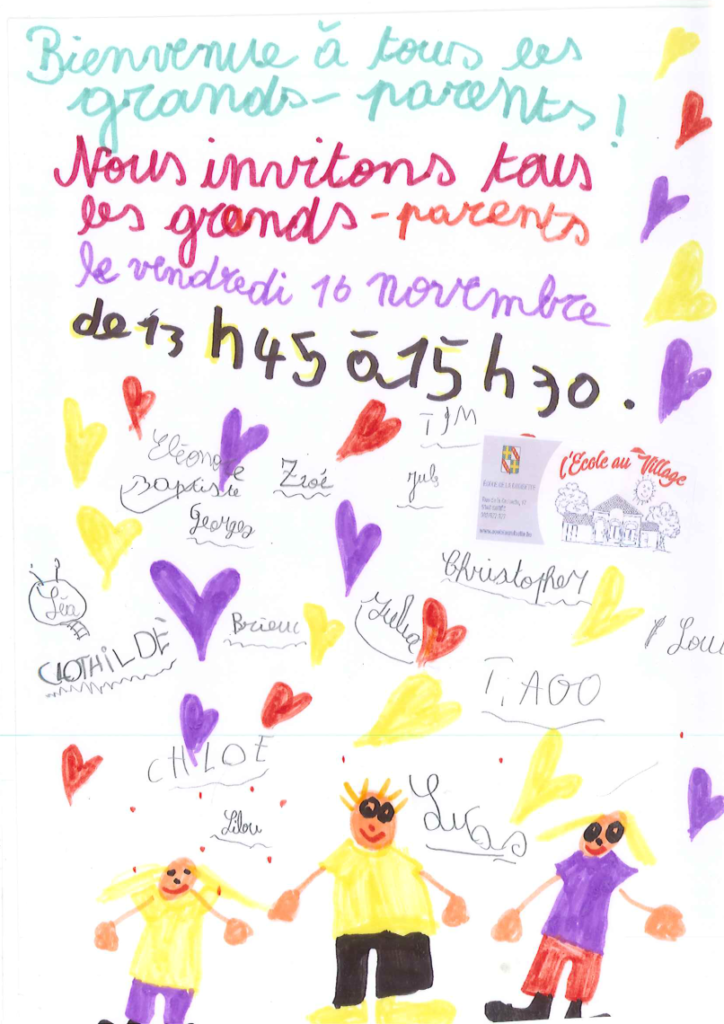 Bienvenue à tous les
grands-parents !
Nous invitons tous
les grands-parents
le vendredi 16 novembre
de 13 h 45 à 15 h 30.
TIM
Eléonore
Baptiste
Zoé
Jub
Georges
l'Ecole au Village
Christopher
Léa
CLOTHILDE
Brieuc
Julia
Lou
TiAGO
CHLOE
Lucas
Lilou